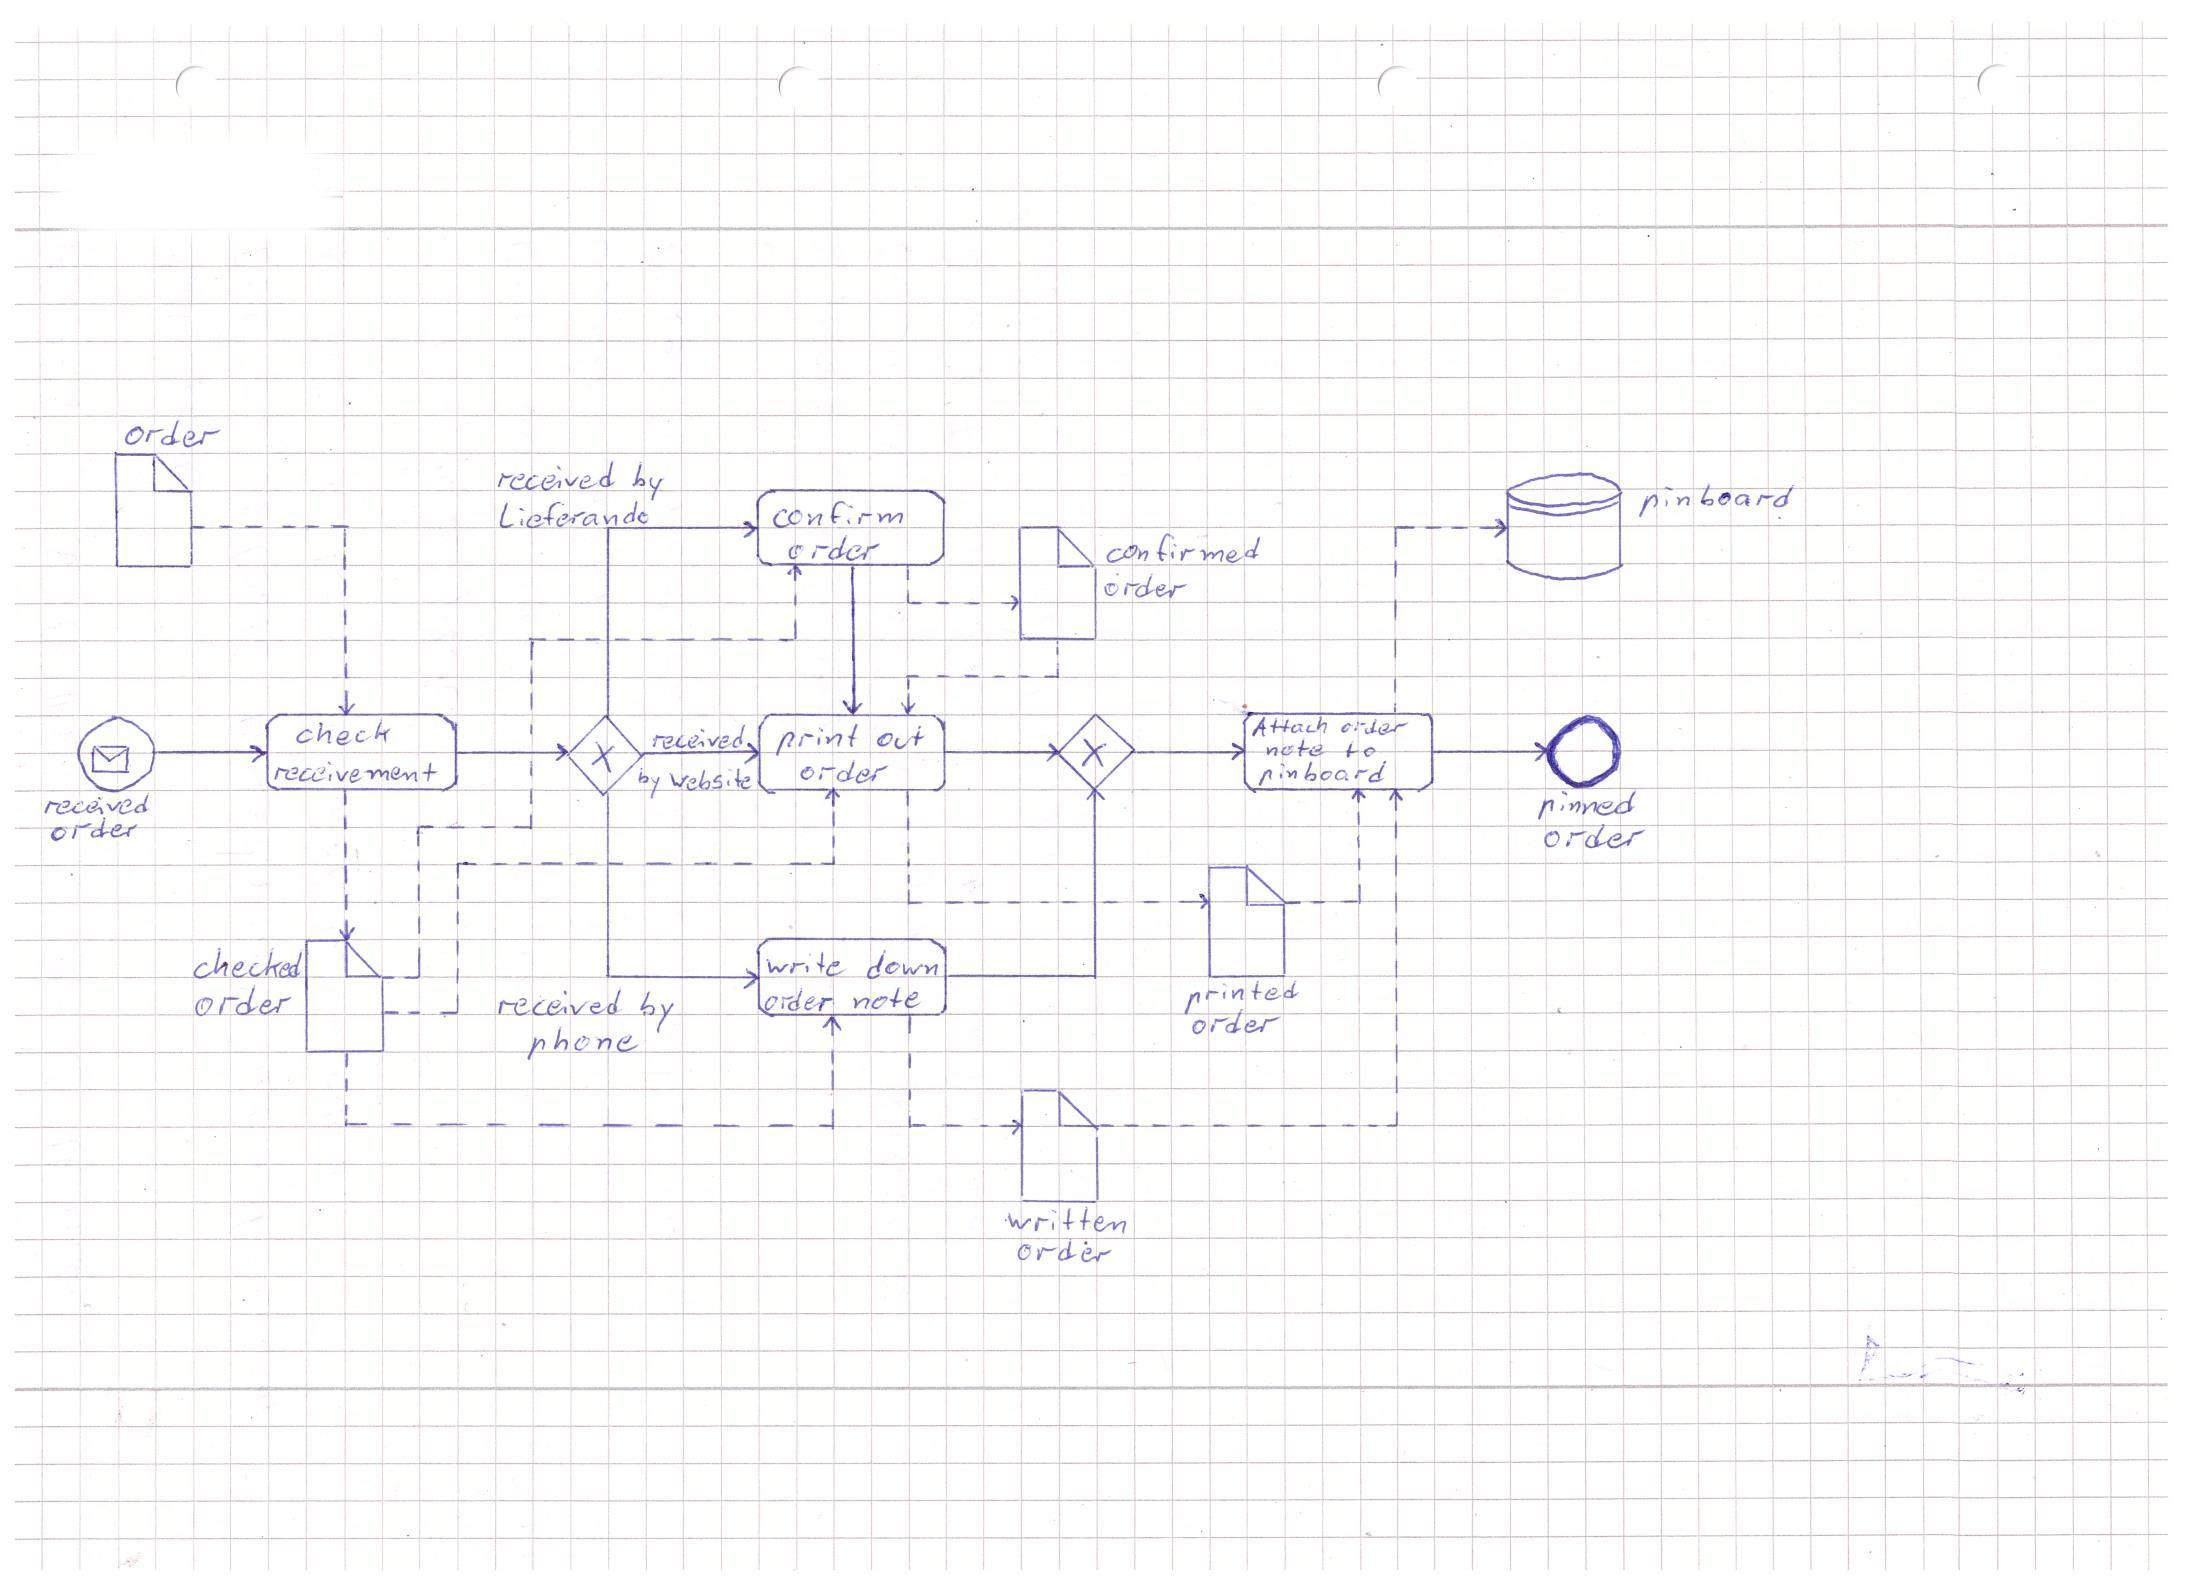 order
received by
Lieferando
confirm
order
confirmed
order
pinboard
received
order
check
receivement
X
received
by website
print out
order
X
Attach order
note to
pinboard
pinned
order
checked
order
received by
phone
write down
order note
printed
order
written
order